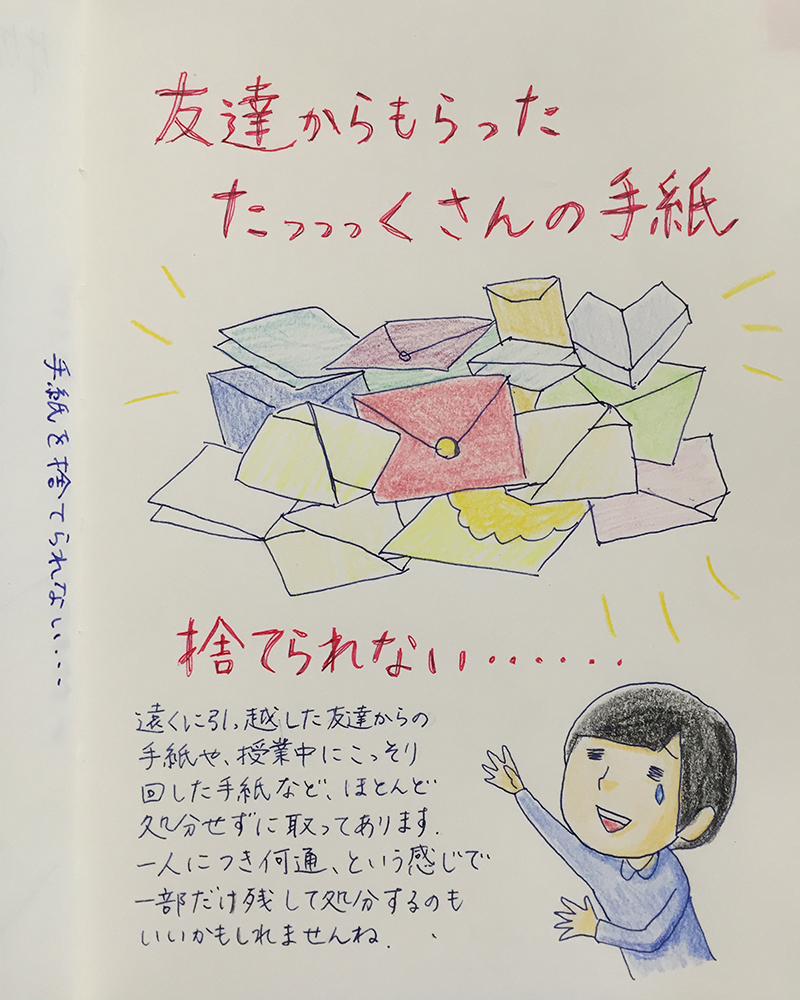 友達からもらった
たっっっくさんの手紙
捨てられない.......
遠くに引っ越した友達からの
手紙や、授業中にこっそり
回した手紙など、ほとんど
処分せずに取ってあります.
一人につき何通、という感じで
一部だけ残して処分するのも
いいかもしれませんね.
手紙を捨てられない...